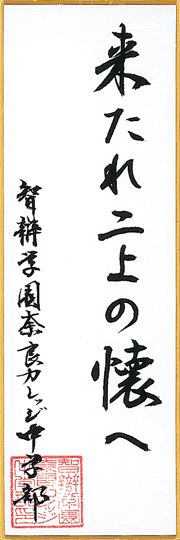 来たれ二上の懐へ
智辯学園奈良カレッジ中学部